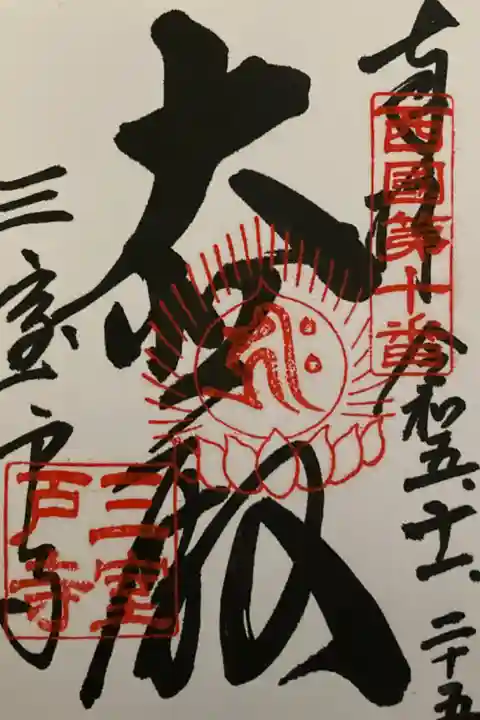 奉拝
西國第十番
令和五、十一、二十五
大悲殿
三室戸寺
三室
戸寺